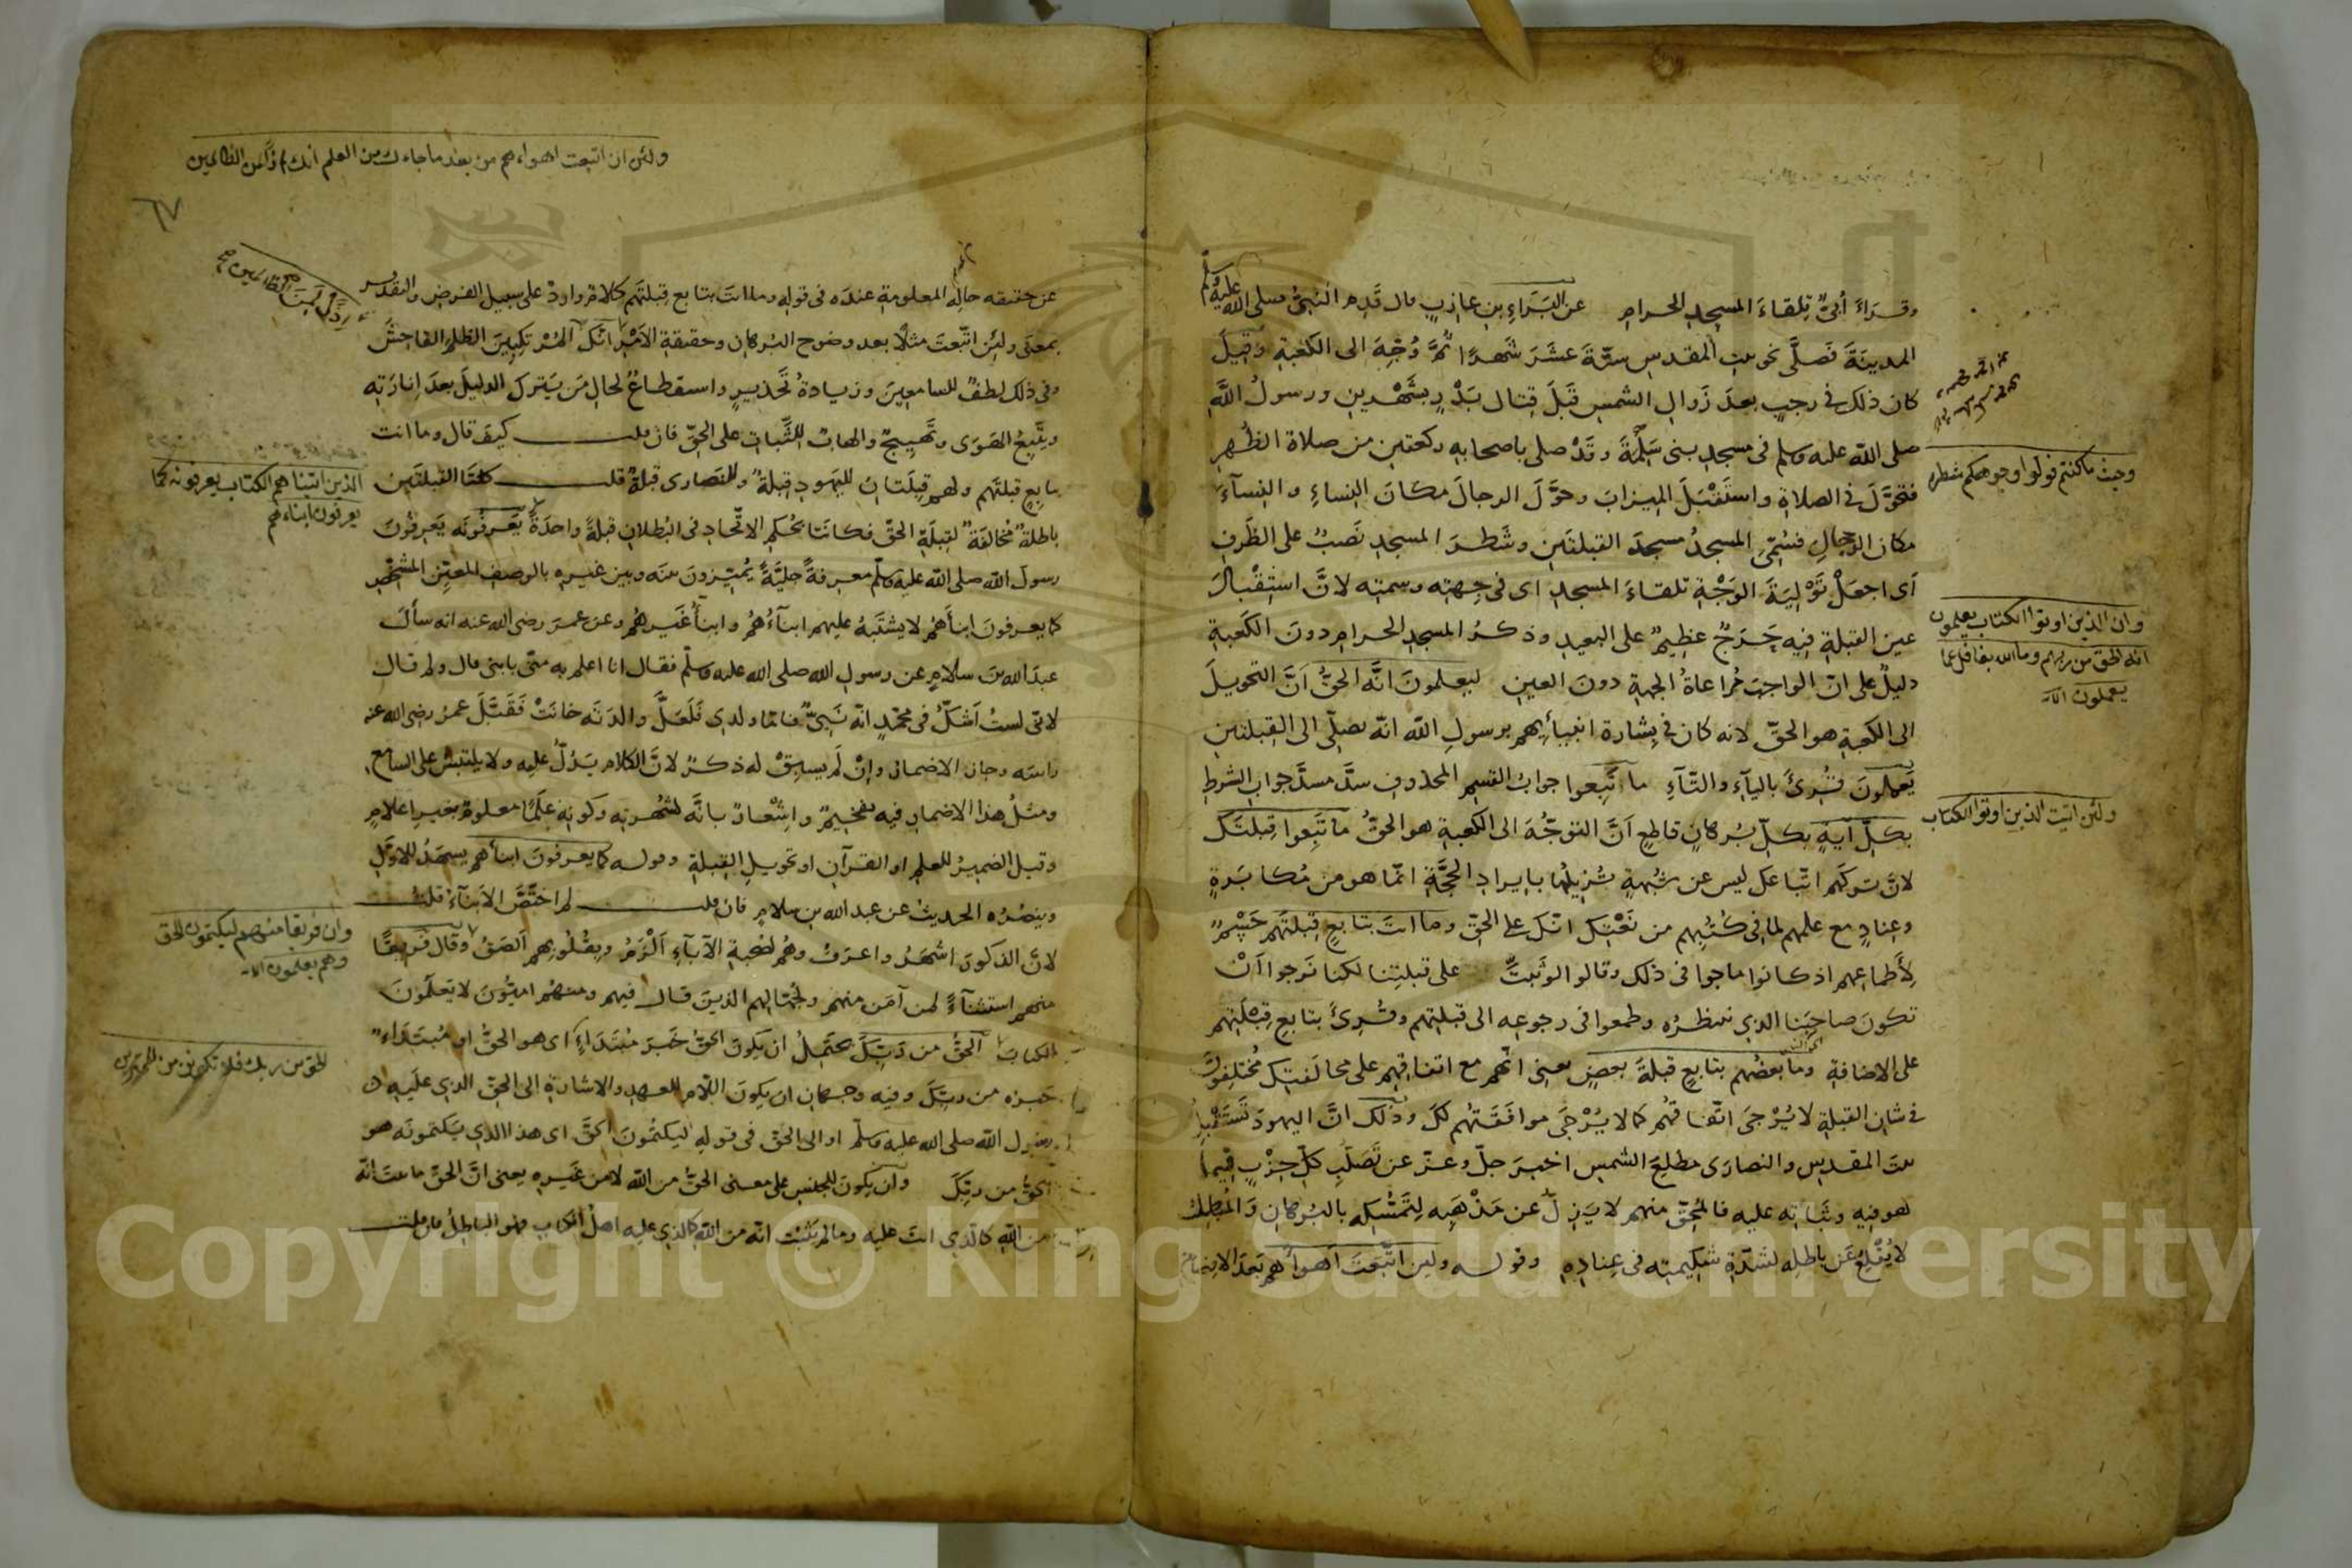 وقرَاءَ أُبىٌّ تِلقاءَ المسجدِ الحرامِ عن البَرَاءِ بنِ عازبٍ قال قَدِمَ النبىُّ صلى الله عليه وسلم
المدينَةَ فَصلَّى نحو بيتِ المقدسِ ستّةَ عشَرَ شَهرًا ثمَّ وُجِّهَ الى الكعبةِ وقيلَ
كان ذلك فى رجبٍ بعدَ زَوالِ الشمسِ قَبلَ قِتالِ بَدْرٍ بِشَهْرينِ ورسولُ اللَّهِ
صلى اللّه عليه وسلم فى مسجدِ بنى سَلِمَةَ وقَدْ صلى باصحابِه ركعتينِ من صلاة الظُهرِ
فتحوَّلَ فى الصلاةِ واستَقْبَلَ الميزابَ وحوَّلَ الرجالَ مكانَ النِساءِ والنِسآءَ
مكانَ الرجالِ فسُمِّى المسجدُ مسجدَ القبلتَينِ وشَطرَ المسجدِ نَصبٌ على الظَرفِ
اَى اجعَلْ تَوْلِيَةَ الوَجْهِ تلقاءَ المسجدِ اى فى جِهتِه وسمتِه لانَّ استِقْبالَ
عينِ القبلةِ فيه حَرَجٌ عظيمٌ على البعيدِ وذكرُ المسجدِ الحرامِ دونَ الكَعبةِ
دليلٌ على انّ الواجبَ مُراعاةُ الجهةِ دونَ العينِ ليعلمونَ انَّه الحقُّ اَنَّ التحويلَ
الى الكعبةِ هو الحقّ لانه كان فى بِشارة انبيأيهم برسولِ اللّه انّه يصلّى الى القبلتينِ
يَعملونَ قُرِئَ باليآءِ والتّآءِ ما تَبِعوا جوابُ القسمِ المحذوفِ سدَّ مسدَّ جوابِ الشرطِ
بكلِّ آيةٍ بكلِّ بُرهانٍ قاطعٍ اَنَّ التوجُّهَ الى الكعبةِ هو الحقُّ ما تَبِعوا قِبلتَكَ
لانّ تركَهم اتّباعَك ليس عن شُبهةٍ تُزيلُها بايرادِ الحجَّةِ انّما هو من مُكابَرةٍ
وعِنادٍ مع علمِهم لما فى كُتُبِهم من نَعْتِكَ انّك على الحقِّ وما انتَ بتابعٍ قبلتَهم حَسْمٌ
لِأَطماعِهم اذ كانوا ماجوا فى ذلك وقالوا لو ثَبتَّ على قبلتِنا لكنا نَرجوا اَنْ
تكونَ صاحبَنا الذى ننتظرُه وطمعوا فى رجوعِه الى قبلتِهم وقُرِئَ بتابعِ قِبلَتِهم
على الاضافةِ وما بعضُهم بتابعٍ قبلةَ بعضٍ يعنى انّهم مع اتفاقِهم على مخالفتِكَ مُختلِفونَ
فى شانِ القبلةِ لا يُرْجَى اتّفاقُهم كما لا يُرْجَى موافَقَتُهم لكَ وذلك انَّ اليهودَ تَستَقْبِلُ
بيتَ المقدسِ والنصارَى مطلِعَ الشمسِ اخبرَ جلّ وعزّ عن تَصَلُّبِ كلِّ حِزْبٍ فيما
هو فيه وثَباتِه عليه فالمُحِقُّ منهم لا يَزِلُّ عن مَذْهَبِه لِتَمَسُّكِه بالبُرهانِ وَالمُبطِلُ
لا يُقْلِعُ عَن باطِلِه لشدَّةِ شكيمتِه فى عِنادِهِ وقوله ولين اتَّبعتَ اَهوأَهم بَعدَ الافصاحِ
وحيث ما كنتم فولوا وجوهكم شطره
وان الذين اوتوا الكتاب يعلمون
انه الحق من ربهم وما الله بغافل عما
يعملون الآية
ولئن اتيت الذين اوتوا الكتاب
ولئن ان اتبعت اهواءهم من بعد ما جاءك من العلم انك اذاً من الظالمين
٦٧
عن حقيقه حالِه المعلومةِ عندَه فى قولِه وما انتَ بتابعٍ قِبلتَهم كلامٌ واردٌ على سبيل الفرضِ والتقدير
بمعنَى ولئن اتّبعتَ مثلًا بعد وضوح البُرهانِ وحقيقةِ الاَمْرِ انّك لَمِنَ المُرْتكِبِينَ الظلمَ الفاحِشَ
وفى ذلك لطفٌ للسامعينَ وزيادةُ تحذيرٍ واستفظاعٌ لحالِ مَن يَتركُ الدليلَ بعدَ اِنارَتِه
ويتَّبِعُ الهَوَى وتَهييجٌ والهابٌ للثَّباتِ على الحقِّ فان قلت كيف قال وما انت
بتابِعٍ قبلتَهم ولهم قِبلَتانِ لليهودِ قبلةٌ وللنَصارى قبلةٌ قلت كلتَا القبلتَينِ
باطلةٌ مُخالفَةٌ لقِبلَةِ الحقِّ فكانَتا بحُكمِ الاتّحادِ فى البُطلانِ قبلةً واحدَةً يَعرِفُونَه يَعرِفونَ
رسولَ اللّه صلى اللّه عليه وسلّم معرفةً جليَّةً يُميّزونَ بينَه وبين غيرِه بالوصفِ المعيّنِ المشخّصِ
كما يعرفونَ ابنأَهُمْ لا يشتَبِهُ عليهم ابنآءُهُمْ وابنأُ غَيرِهُم وعن عمرَ رضى الله عنه انه سأَلَ
عبدَ اللّه بنَ سلامٍ عن رسولِ اللّه صلى اللّه عليه وسلّم فقال انا اعلم به منّى بابنى قال ولم قال
لانّى لستُ اَشكُّ فى محمّدٍ انّه نَبِىٌّ فامّا ولدى فَلَعَلَّ والدَتَه خانَتْ فَقَبَّلَ عمرُ رضى الله عنه
راسَه وجاز الاضمارُ وانْ لَم يسبِقْ له ذكرٌ لانَّ الكلامَ يَدُلُّ عليه ولا يلتبسُ على السامعِ
ومثلُ هذا الاضمارِ فيه تفخيمٌ واِشْعارٌ بانّه لشُهرتِه وكونِه عَلَمًا معلومٌ بغيرِ اعلامٍ
وقيل الضميرُ للعلمِ او القرآنِ او تحويلِ القبلةِ وقوله كما يعرفونَ ابنأَهم يشهَدُ للاوَّلِ
وينصُرُه الحديثُ عن عبد اللّه بنِ سلامٍ فان قلت لم اختَصَّ الاَبنآءَ قلت
لانَّ الذكورَ اشهَرُ واعرَفُ وهُم لصُحبةِ الآبآءِ اَلْزَمُ وبِقُلُوبِهم اَلصَقُ وقال فَريقًا
منهم استثنآءً لمن آمَن منهم ولجُهّالِهم الذينَ قال فيهم ومنهُم امِّيُّونَ لا يَعلَمونَ
الكتابَ الحقُّ من رَبِّكَ يحتَمِلُ ان يكونَ الحقُّ خَبرَ مُبتَداءٍ اى هو الحقُّ او مُبتَدَاءٌ
خبرُه من ربِّكَ وفيه وجهانِ ان يكونَ اللّام للعهدِ والاشارةِ الى الحقّ الذى علَيه
رسُول اللّه صلى اللّه عليه وسلّم او الى الحقّ فى قولِه ليكتُمُونَ الحقَّ اى هذا الذى يَكتمونَه هو
الحقُّ من ربِّكَ وان يكونَ للجنسِ على معنى الحقُّ من اللّه لا من غيرِه يعنى انَّ الحقَّ ما ثبتَ انّه
من اللّهِ كالّذى انتَ عليه وما لم يَثْبُت انّه من اللّه كالذى عليه اهلُ الكتابِ فهو الباطِلُ فان قلت
الذين اتيناهم الكتاب يعرفونه كما
يعرفون ابناءهم
وان فريقا منهم ليكتمون الحق
وهم يعلمون الآية
الحق من ربك فلا تكونن من الممترين
Copyright © King Saud University